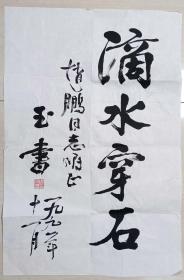 滴水穿石
鹏同志嘱正
玉书
一九九一年
十一月